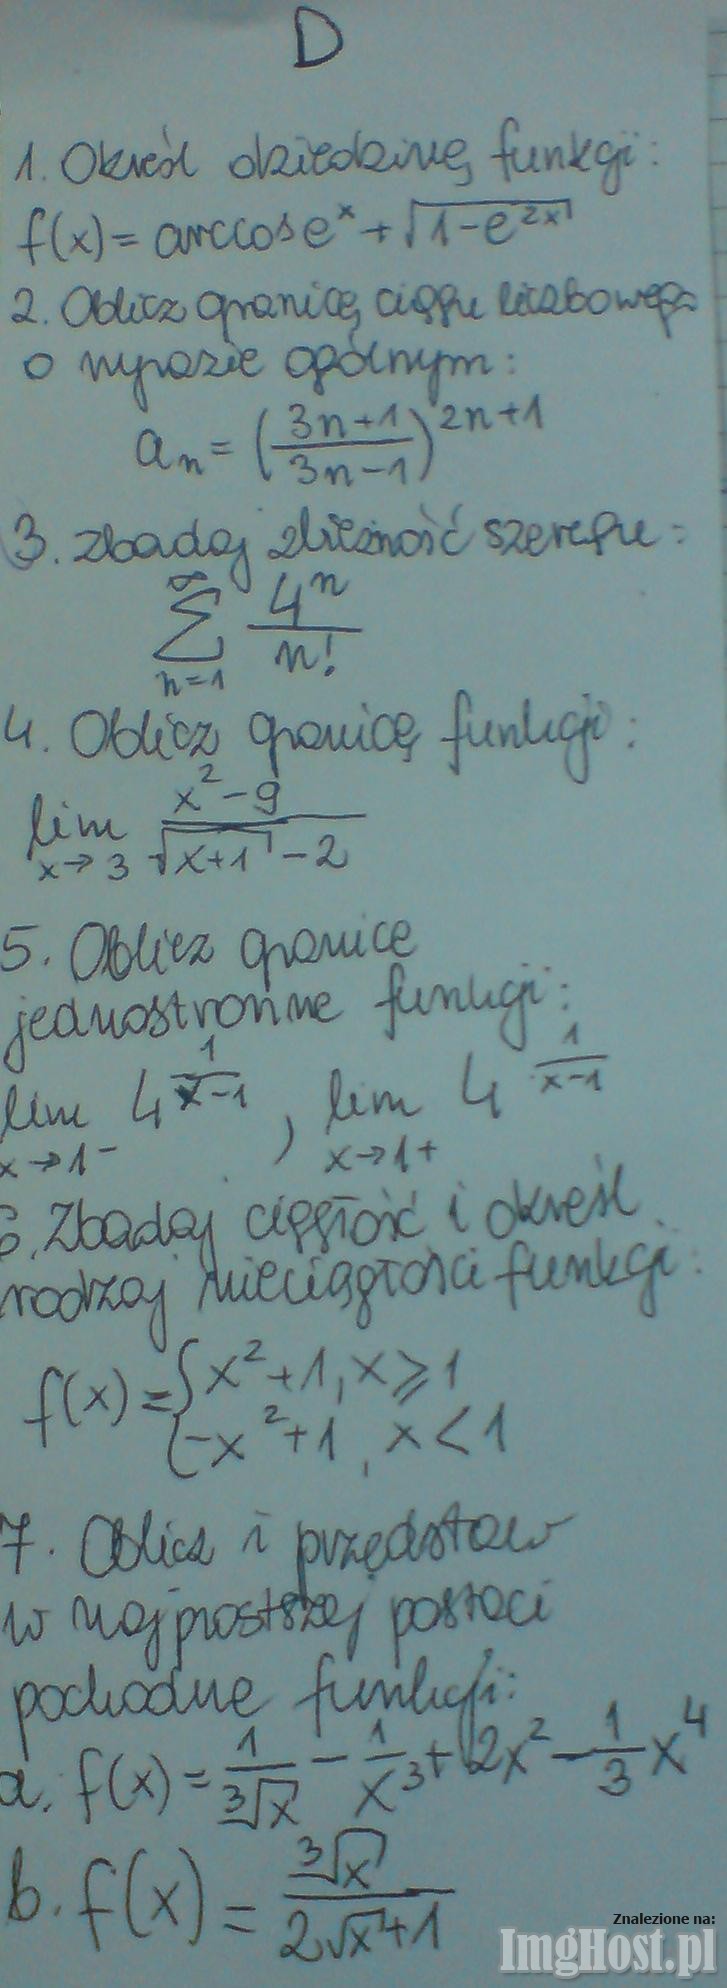 D
1. Określ dziedzinę funkcji:
f(x) = arccos e^x + √(1-e^(2x))
2. Oblicz granicę ciągu liczbowego
o wyrazie ogólnym:
a_n = ((3n+1)/(3n-1))^(2n+1)
3. Zbadaj zbieżność szeregu:
∑_{n=1}^{∞} 4^n/n!
4. Oblicz granicę funkcji:
lim_{x→3} (x²-9)/(√(x+1) -2)
5. Oblicz granice
jednostronne funkcji:
lim_{x→1-} 4^(1/(x-1)), lim_{x→1+} 4^(1/(x-1))
6. Zbadaj ciągłość i określ
rodzaj nieciągłości funkcji:
f(x) = { x²+1, x ≥ 1
-x²+1, x < 1
7. Oblicz i przedstaw
w najprostszej postaci
pochodne funkcji:
a. f(x) = 1/∛x - 1/x³ + 2x² - 1/3 x⁴
b. f(x) = ∛x/(2√x+1)
Znalezione na:
ImgHost.pl